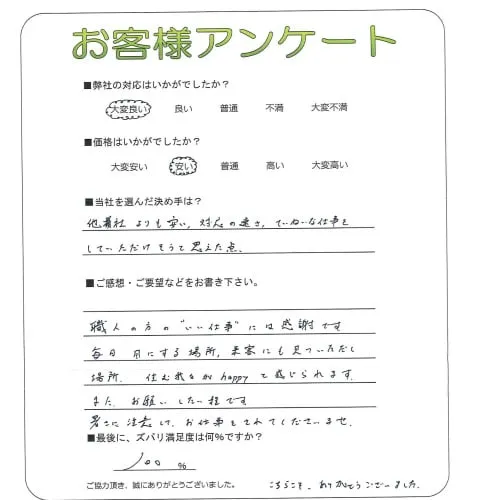 お客様アンケート
■弊社の対応はいかがでしたか？
大変良い 良い 普通 不満 大変不満
■価格はいかがでしたか？
大変安い 安い 普通 高い 大変高い
■当社を選んだ決め手は？
他者社よりも安い,対応の速さ,ていねいな仕事を
していただけそうと思えた点、
■ご感想・ご要望などをお書き下さい。
職人の方の"いい仕事"には感謝です
毎日目にする場所,来客にも見ていただく
場所、住む我々がhappyと感じられます.
また、お願いしたい程です
暑さに注意して、お仕事をされてくださいませ、
■最後に、ズバリ満足度は何％ですか？
100 ％
ご協力頂き、誠にありがとうございました。 こちらこそ、ありがとうございました.